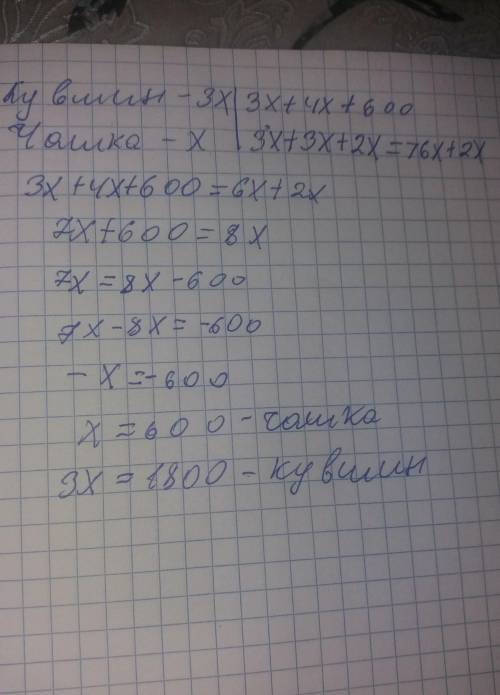 Кувшин - 3x | 3x+4x+600
Чашка - x | 3x+3x+2x=76x+2x
3x+4x+600=6x+2x
7x+600=8x
7x=8x-600
7x-8x=-600
-x=-600
x=600-чашка
3x=1800-кувшин